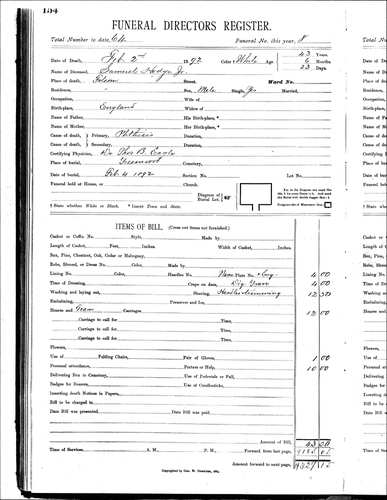 134
FUNERAL DIRECTORS REGISTER.
Total Number to date, 64 Funeral No. this year, 8
Date of Death, Feby 2nd 1892 Color White Age 43 Years 6 Months 23 Days
Name of Deceased, Samuel Hodge Jr.
Place of Death, Folsom Street, Ward No.
Residence, " Sex, Male Single, Yes Married,
Occupation, Wife of
Birth-place, England Widow of
Name of Father, His Birth-place, "
Name of Mother, Her Birth-place, "
Cause of death, Primary, Phthisis Duration,
Cause of death, Secondary, Duration,
Certifying Physician, Dr Thos B.
Place of burial, Greenwood Cemetery,
Date of burial, Feb 4 1892 Section No. Lot No.
Funeral held at Home, or Church.
Diagram of Burial Lot.
† State whether White or Black. * Insert Town and State.
ITEMS OF BILL. (Cross out items not furnished.)
Casket or Coffin No. Style, Made by
Length of Casket, Feet, Inches Width of Casket, Inches
Box, Pine, Chestnut, Oak, Cedar or Mahogany,
Robe, Shroud, or Dress No. Color, Made by
Lining No. Color, Handles No. Name Plate No. & Eng. 4 00
Time of Dressing, Crape on door, Dig. Grave 4 00
Washing and laying out, Shaving, 12 50
Embalming, Preserver and Ice,
Hearse and Team Carriages, 12 00
Carriage to call for Time,
Carriage to call for Time,
Carriage to call for Time,
Carriage to call for Time,
Flowers,
Use of Folding Chairs, Pair of Gloves, 1 00
Personal attendance, Porters or Help, 10 00
Delivering Box to Cemetery, Use of Pedestals or Pall,
Badges for Bearers, Use of Candlesticks,
Inserting death Notices in Papers,
Bill to be charged to
Date Bill was presented, Date Bill was paid.
Amount of Bill,
Time of Services, A. M., P. M. Forward from last page,
Amount forward to next page,